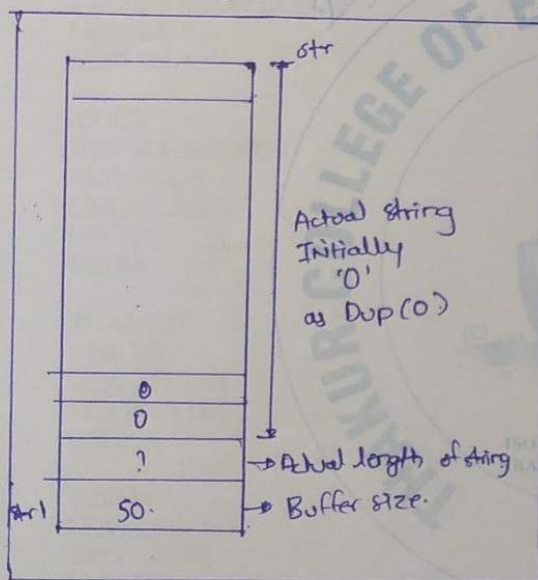 str
Actual string
Initially
'0'
as Dup(0)
0
0
? → Actual length of string
str1 50. → Buffer size.
THAKUR COLLEGE OF E